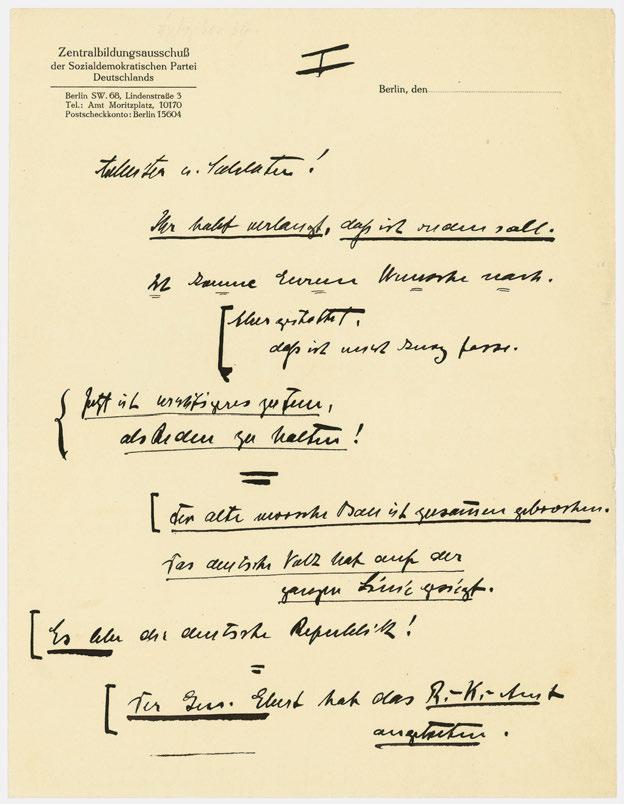 Zentralbildungsausschuß
der Sozialdemokratischen Partei
Deutschlands
Berlin SW. 68, Lindenstraße 3
Tel.: Amt Moritzplatz, 10170
Postscheckkonto: Berlin 15604
I
Berlin, den
Arbeiter u. Soldaten!
Ihr habt verlangt, daß ich reden soll.
Ich komme Eurem Wunsche nach.
Aber gestattet,
daß ich mich kurz fasse.
Jetzt ist wichtigeres zu tun,
als Reden zu halten!
Der alte morsche Bau ist zusammengebrochen.
Das deutsche Volk hat auf der
ganzen Linie gesiegt.
Es lebe die deutsche Republik!
Der Gen. Ebert hat das R.-K.-Amt
angetreten.